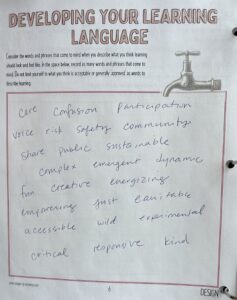 DEVELOPING YOUR LEARNING
LANGUAGE
Consider the words and phrases that come to mind when you describe what you think learning
should look and feel like. In the space below, record as many words and phrases that come to
mind. Do not limit yourself to what you think is acceptable or generally approved as words to
describe learning.
care confusion participation
voice risk safety community
share public sustainable
complex emergent dynamic
fun creative energizing
empowering just equitable
accessible wild experimental
critical responsive kind
6
DESIGN